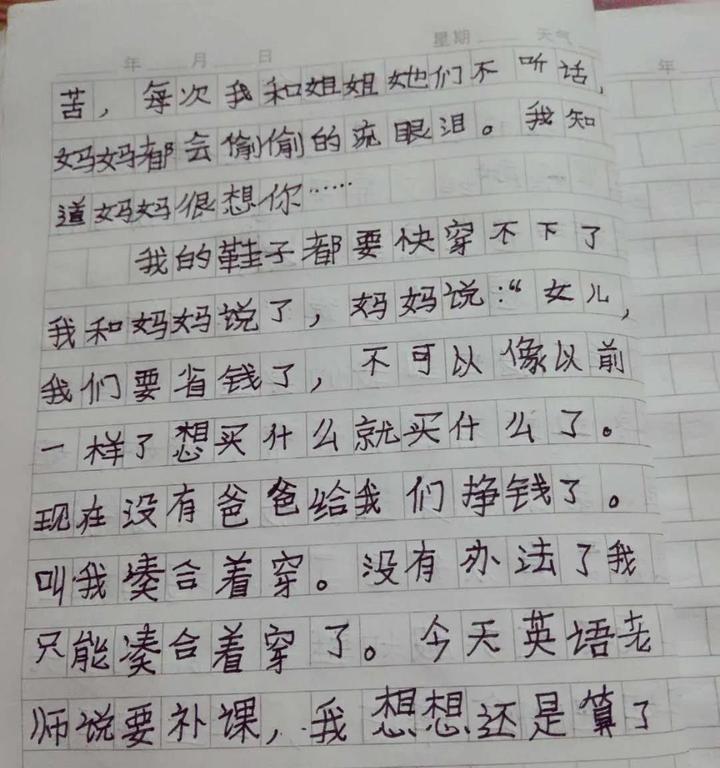 年 月 日 星期 天气
年
苦，每次我和姐姐她们不听话，
妈妈都会偷偷的流眼泪。我知
道妈妈很想你……
我的鞋子都要快穿不下了
我和妈妈说了，妈妈说：“女儿，
我们要省钱了，不可以像以前
一样了想买什么就买什么了。
现在没有爸爸给我们挣钱了。
叫我凑合着穿。没有办法了我
只能凑合着穿了。今天英语老
师说要补课，我想想还是算了